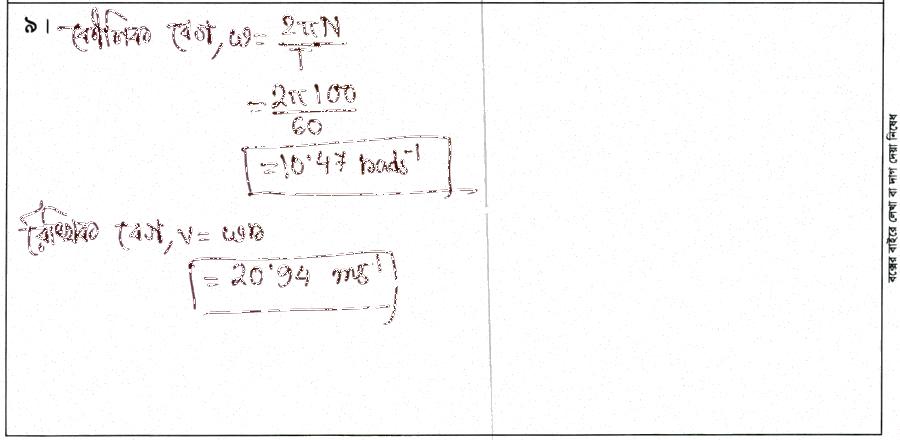 ৯। কৌণিক বেগ, ω = 2πN/T
= 2π100/60
= 10.47 rads⁻¹
রৈখিক বেগ, v = ωr
= 20.94 ms⁻¹
বক্সের বাইরে লেখা বা দাগ দেয়া নিষেধ